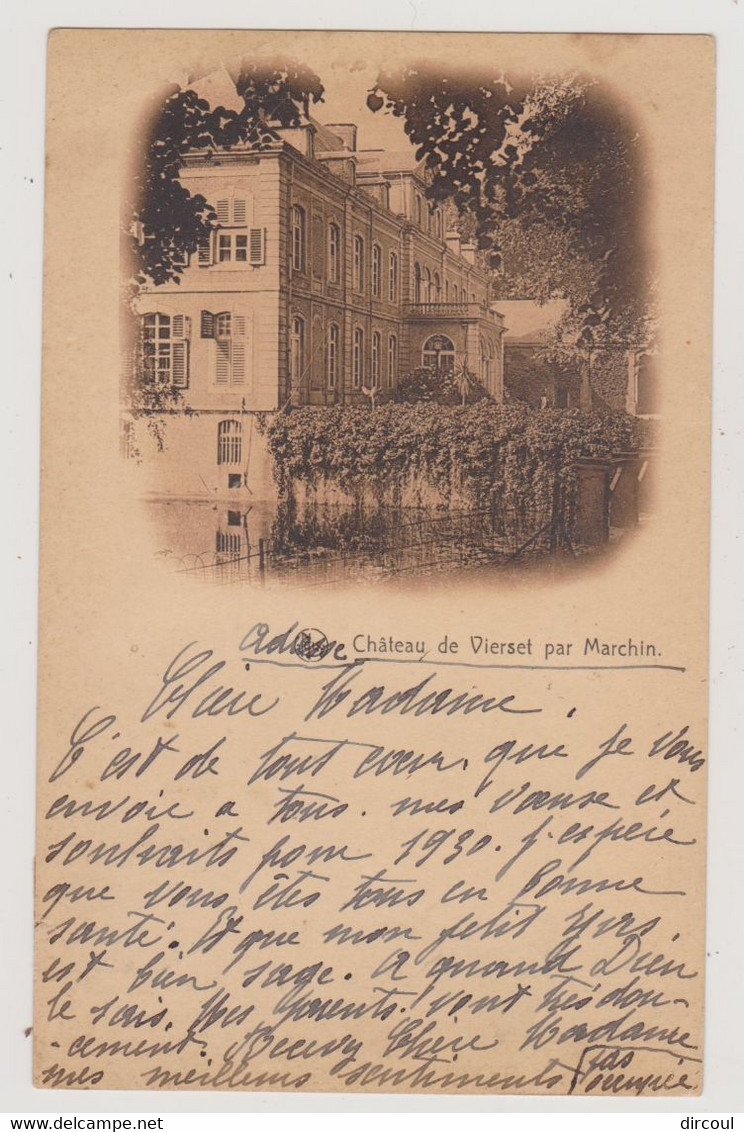 adresse Château de Vierset par Marchin.
Chère Madame.
C'est de tout coeur, que je vous
envoie a tous. mes voeuse et
souhaits pour 1930. j'espére
que vous êtes tous en bonne
santé. Et que mon petit
est bien sage. A quand Dieu
le sais. Mes parents. vont très dou-
-cement. Recevez Chère Madame
mes meilleurs sentiments
pas
occupée
delcampe.net
dircoul